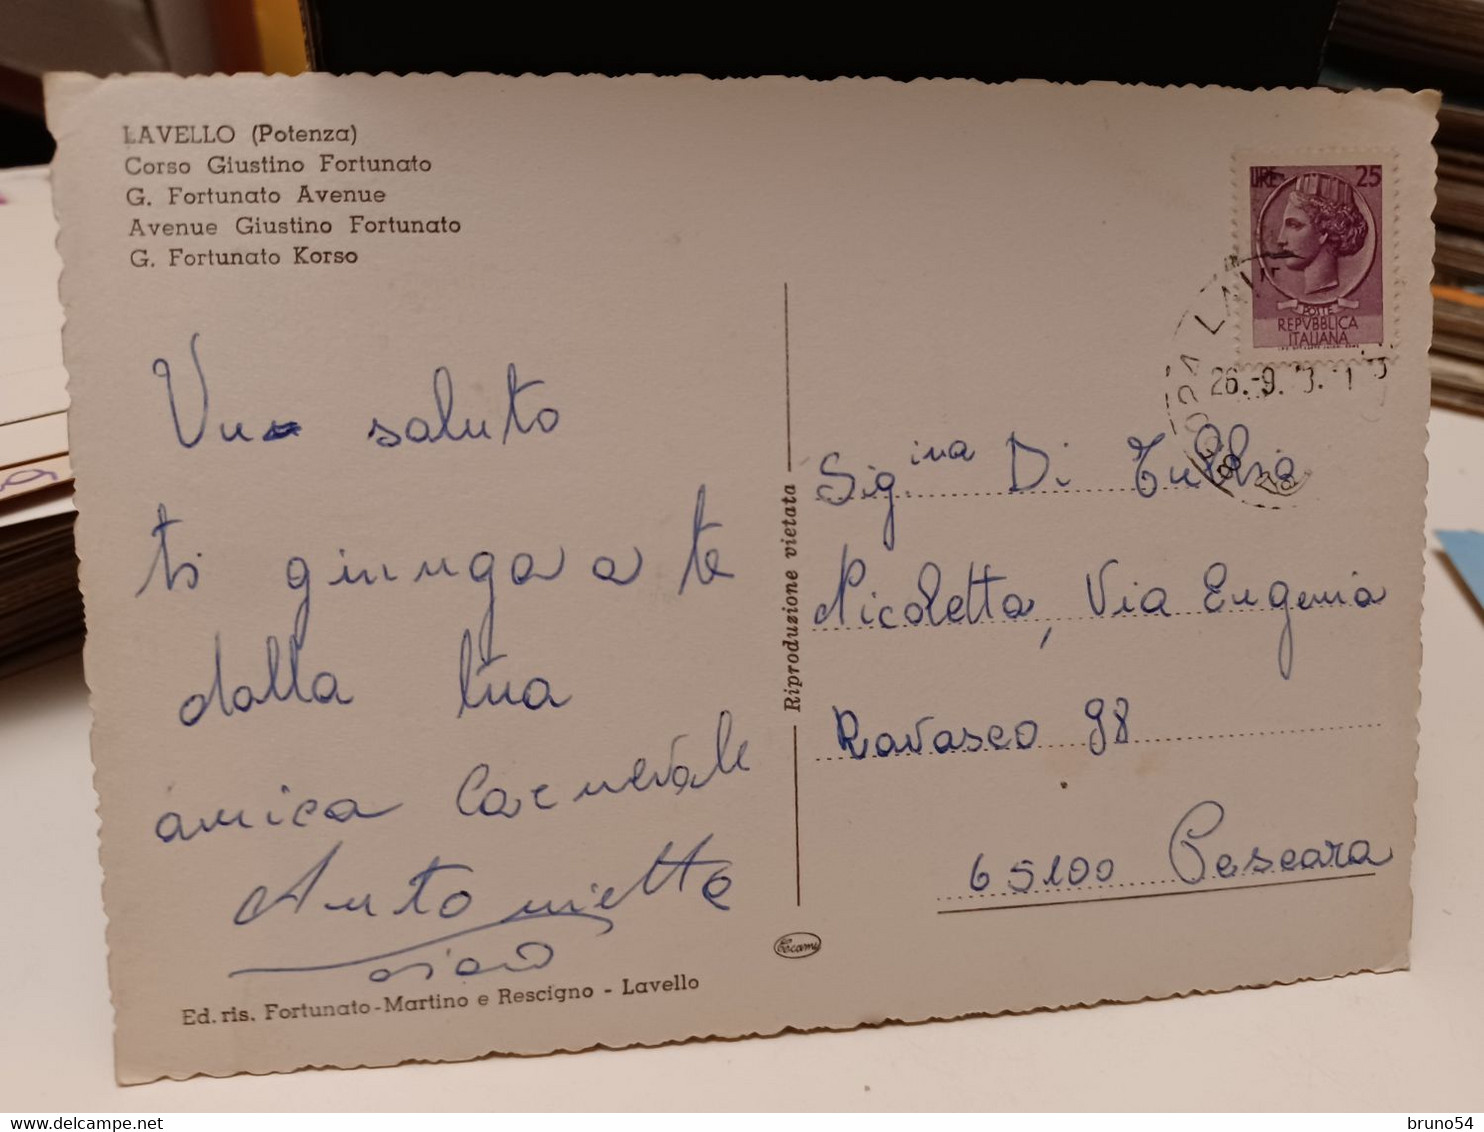 LAVELLO (Potenza)
Corso Giustino Fortunato
G. Fortunato Avenue
Avenue Giustino Fortunato
G. Fortunato Korso
Un saluto
ti giunga a te
dalla tua
amica Carnevale
Antonietta
ciao
Ed. ris. Fortunato-Martino e Rescigno - Lavello
Riproduzione vietata
Cecami
LIRE 25
POSTE
REPVBBLICA
ITALIANA
85024 LAVE
26.-9.
Sig.ina Di Tullio
Nicoletta, Via Eugenia
Ravasco 98
65100 Pescara
bruno54